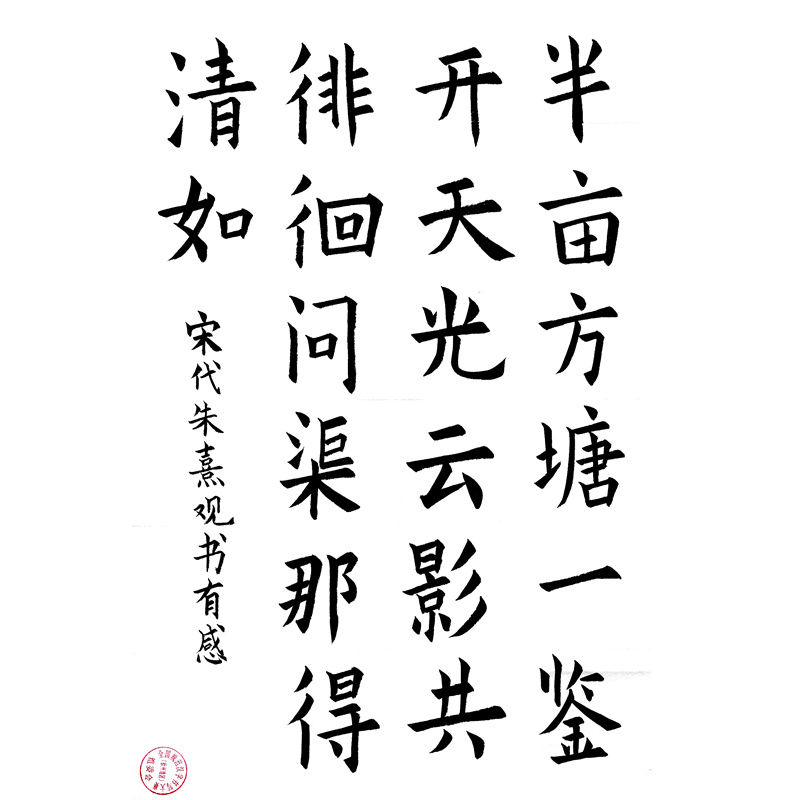 半亩方塘一鉴
开天光云影共
徘徊问渠那得
清如
宋代朱熹观书有感